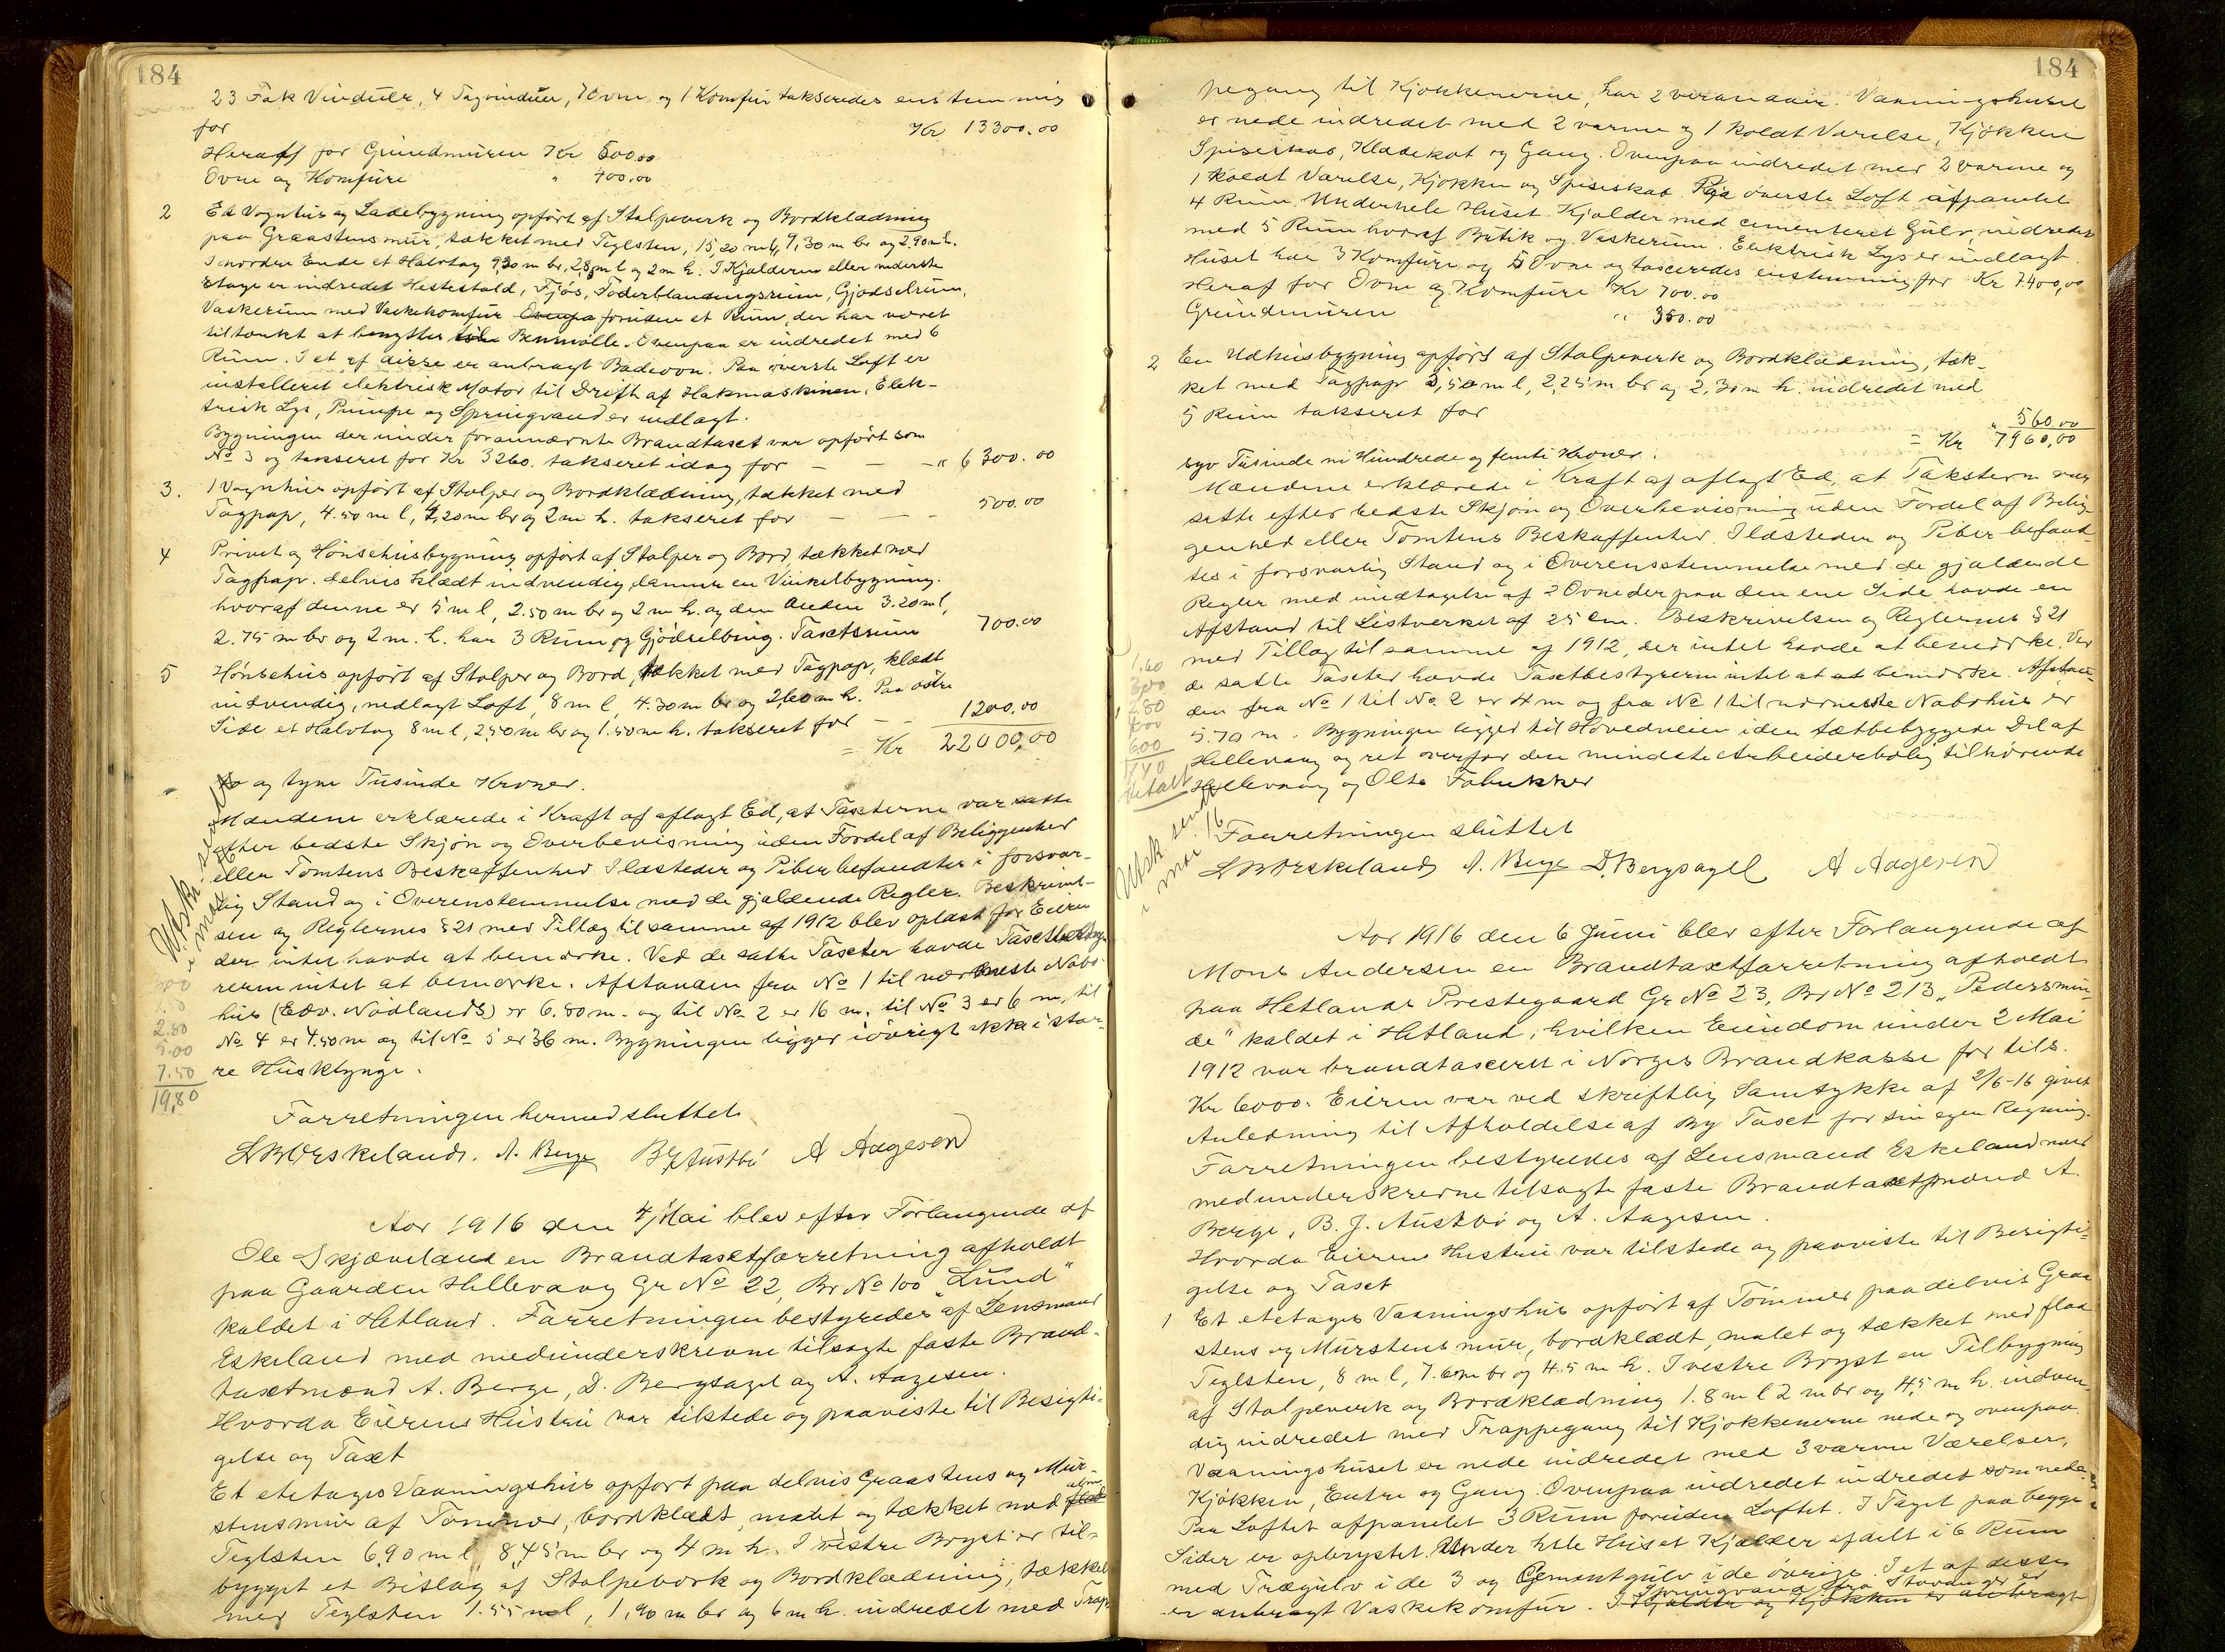 184
23 Fak Vinduer, 4 Tagvinduer, 7 Ovne og 1 Komfur takseredes enstemmig
for Kr 13300.00
Heraf for Grundmuren Kr 500.00
Ovne og Komfure " 400.00
2 Et Vognhus og Ladebygning opført af Stolpeverk og Bordklædning
paa Graastensmur, tækket med Teglsten, 15,20 m l, 9,30 m br og 2,90 m h.
I nordre Ende et Halvtag 9,30 m br, 2,8 m l og 2 m h. I Kjælderen eller nederste
Etage er indredet Hestestald, Fjøs, Foderblandingsrum, Gjødselrum,
Vaskerum med Vaskekomfur foruden et Rum, der har været
tiltænkt at benyttes Benmølle. Ovenpaa er indredet med 6
Rum. I et af disse er anbragt Badeovn. Paa øverste Loft er
installeret elektrisk Motor til Drift af Hakmaskinen. Elek-
trisk Lys, Pumpe og Springvand er indlagt.
Bygningen der under forannævnte Brandtaxt var opført som
No 3 og takseret for Kr 3260. takseret idag for - - - " 6300.00
3. 1 Vognhus opført af Stolper og Bordklædning, tækket med
Tagpap, 4.50 m l, 4,20 m br og 2 m h. takseret for - - - 500.00
4 Privet og Hønsehusbygning opført af Stolper og Bord, tækket med
Tagpap. delvis klædt indvendig danner en Vinkelbygning.
hvoraf denne er 5 m l, 2.50 m br og 2 m h. og den Anden 3.20 m l,
2.75 m br og 2 m. h. har 3 Rum og Gjødselbing. Taxtsum 700.00
5 Hønsehus opført af Stolper og Bord, tækket med Tagpap, klædt
indvendig, nedlagt Loft, 8 m l, 4.30 m br og 2,60 m h. Paa østre
Side et Halvtag 8 m l, 2,50 m br og 1.50 m h. takseret for - - 1200.00
= Kr 22000,00
To og tyve Tusinde Kroner.
Mændene erklærede i Kraft af aflagt Ed, at Taxterne var satte
efter bedste Skjøn og Overbevisning uden Fordel af Beliggenhed
eller Tomtens Beskaffenhed Ildsteder og Piber befandtes i forsvar-
lig Stand og i Overenstemmelse med de gjældende Regler. Beskrivel-
sen og Reglernes § 21 med Tillæg til samme af 1912 blev oplæst for Eieren
der intet havde at bemærke. Ved de satte Taxter havde Taxtbesty-
reren intet at bemærke. Afstanden fra No 1 til nærmeste Nabo-
hus (Edv. Nødlands) er 6.80 m. og til No 2 er 16 m, til No 3 er 6 m, til
No 4 er 4.50 m og til No 5 er 36 m. Bygningen ligger iøvrigt ikke i stør-
re Husklynge.
2.80
5.00
7.50
19,80
Forretningen hermed sluttet
A. Berge A Aagesen
Aar 1916 den 4/Mai blev efter Forlangende af
Ole Skjæveland en Brandtaxtforretning afholdt
paa Gaarden Hillevaag Gr No 22, Br No 100 "Lund"
kaldet i Hetland. Forretningen bestyredes af Lensmand
Eskeland med medunderskrevne tilsagte faste Brand-
taxtmænd A. Berge, D. Bergsagel og A. Aagesen.
Hvorda Eierens Hustru var tilstede og paaviste til Besigti-
gelse og Taxt
Et etetages Vaaningshus opført paa delvis Graastens og Mur-
stensmur af Tømmer, bordklædt, malet og tækket med
Teglsten 6,90 m l 8,45 m br og 4 m h. I vestre Bryst er til-
bygget et Bislag af Stolpeverk og Bordklædning, tækket
med Teglsten 1.55 m l, 1,90 m br og 6 m h. indredet med Trap-
184
pegang til Kjøkkenerne, har 2 verandaer. Vaaningshuset
er nede indredet med 2 varme og 1 koldt Værelse, Kjøkken
Spiseskab, Klædekot og Gang. Ovenpaa indredet med 2 varme og
1 koldt Værelse, Kjøkken og Spiseskab. Paa øverste Loft afpanelet
4 Rum. Underhele Huset Kjælder med cementeret Gulv, indredet
med 5 Rum hvoraf Butik og Vaskerum. Elektrisk Lys er indlagt.
Huset har 3 Komfure og 5 Ovne og taxeredes enstemmig for Kr 7400,00
Heraf for Ovne og Komfure Kr 700.00
Grundmuren " 350.00
2 En Udhusbygning opført af Stolpeverk og Bordklædning, tæk-
ket med Tagpap 3,50 m l, 2,25 m br og 2,30 m h. indredet med
5 Rum takseret for " 560.00
= Kr 7960,00
syv Tusinde ni Hundrede og femti Kroner.
Mændene erklærede i Kraft af aflagt Ed, at Taksterne var
satte efter bedste Skjøn og Overbevisning uden Fordel af Belig-
genhed eller Tomtens Beskaffenhed. Ildsteder og Piber befand-
tes i forsvarlig Stand og i Overensstemmelse med de gjældende
Regler med undtagelse af 2 Ovne der paa den ene Side havde en
Afstand til Listverket af 25 Cm. Beskrivelsen og Reglernes § 21
med Tillæg til samme af 1912, der intet havde at bemærke. Ved
de satte Taxter havde Taxtbestyreren intet at bemærke. Afstan-
den fra No 1 til No 2 er 4 m og fra No 1 til nærmeste Nabohus er
5.70 m. Bygningen ligger til Hovedveien i den tætbebyggede Del af
Hillevaag og ret overfor den mindste Arbeiderbolig tilhørende
Hillevaag og Ølts Fabrikker
betalt
Forretningen sluttet
A. Berge D. Bergsagel A Aagesen
Aar 1916 den 6 Juni blev efter Forlangende af
Mons Andersen en Brandtaxtforretning afholdt
paa Hetlands Prestegaard Gr No 23, Br No 213, "Pedersmin-
de" kaldet i Hetland, hvilken Eiendom under 2 Mai
1912 var brandtaxeret i Norges Brandkasse for tils.
Kr 6000. Eieren var ved skriftlig Samtykke af 2/6-16 givet
Anledning til Afholdelse af Ny Taxt for sin egen Regning.
Forretningen bestyredes af Lensmand Eskeland med
medunderskrevne tilsagte faste Brandtaxtmænd A.
Berge, B. J. Austbø og A. Aagesen.
Hvorda Eierens Hustru var tilstede og paaviste til Besigti-
gelse og Taxt
1 Et etetages Vaaningshus opført af Tømmer paa delvis Graa-
stens og Murstensmur, bordklædt, malet og tækket med flad
Teglsten, 8 m l, 7.60 m br og 4.5 m h. I vestre Bryst en Tilbygning
af Stolpeverk og Bordklædning 1.8 m l 2 m br og 4,5 m h. indven-
dig indredet med Trappegang til Kjøkkenerne nede og ovenpaa.
Vaaningshuset er nede indredet med 3 varme Værelser,
Kjøkken, Entre og Gang. Ovenpaa indredet indredet som nede.
Paa Loftet afpanelet 3 Rum foruden Loftet. I Taget paa begge
Sider er opbrystet. Under hele Huset Kjælder afdelt i 6 Rum
med Trægulv i de 3 og Cementgulv i de øvrige. I et af disse
er anbragt Vaskekomfur. Springvand fra Stavanger er
I Kjælder og Kjøkken er anbragt